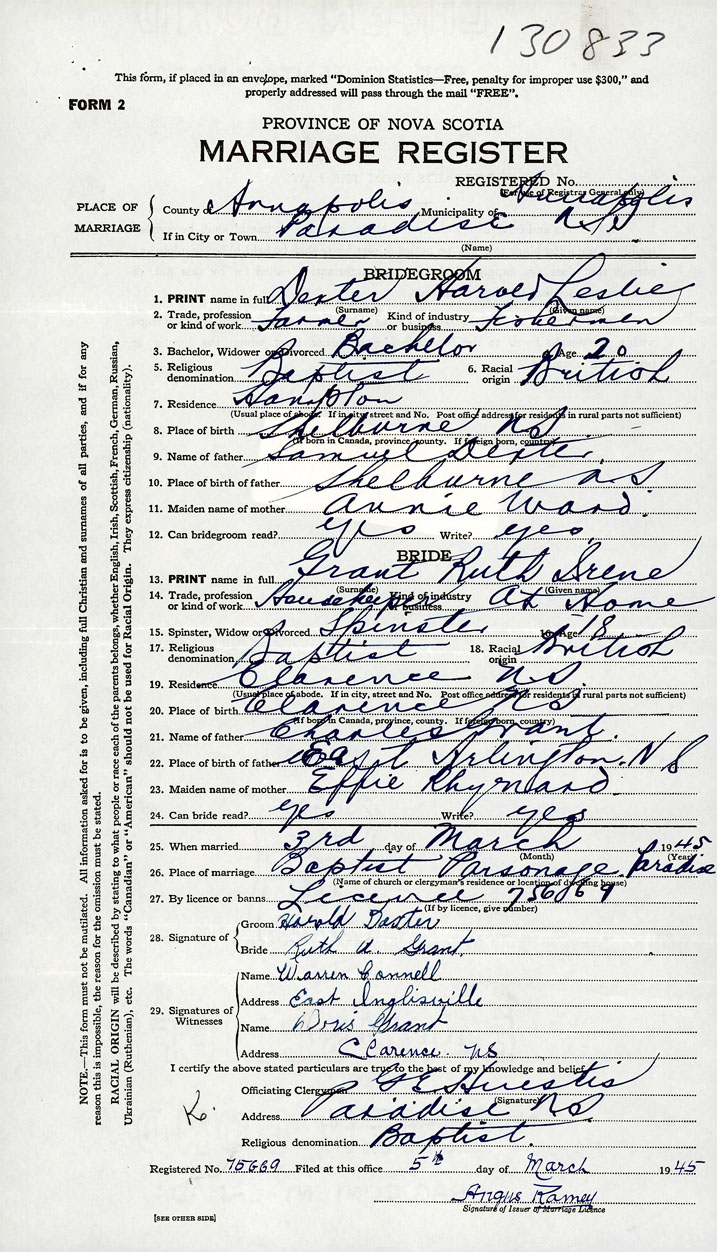 130833
This form, if placed in an envelope, marked "Dominion Statistics—Free, penalty for improper use $300," and
properly addressed will pass through the mail "FREE".
FORM 2
PROVINCE OF NOVA SCOTIA
MARRIAGE REGISTER
REGISTERED No.
(For use of Registrar General only)
PLACE OF MARRIAGE
County of Annapolis Municipality of Annapolis
If in City or Town Paradise N.S.
(Name)
BRIDEGROOM
1. PRINT name in full Dexter Harold Leslie
(Surname) (Given name)
2. Trade, profession or kind of work Farmer Kind of industry or business Fisherman
3. Bachelor, Widower or Divorced Bachelor Age 20
5. Religious denomination Baptist 6. Racial origin British
7. Residence
(Usual place of abode. If in city, street and No. Post office address for residents in rural parts not sufficient)
8. Place of birth Shelburne NS
(If born in Canada, province, county. If foreign born, country)
9. Name of father Samuel Dexter
10. Place of birth of father Shelburne N S
11. Maiden name of mother Annie Ward.
12. Can bridegroom read? yes Write? yes
BRIDE
13. PRINT name in full Grant Ruth Irene
(Surname) (Given name)
14. Trade, profession or kind of work Housekeeper Kind of industry or business At Home
15. Spinster, Widow or Divorced Spinster 16. Age 18
17. Religious denomination Baptist 18. Racial origin British
19. Residence Clarence NS
(Usual place of abode. If in city, street and No. Post office address for residents in rural parts not sufficient)
20. Place of birth Clarence N S
(If born in Canada, province, county. If foreign born, country)
21. Name of father Charles Grant.
22. Place of birth of father East Arlington. N S
23. Maiden name of mother Effie Rhynard
24. Can bride read? yes Write? yes
25. When married 3rd day of March 1945
(Month) (Year)
26. Place of marriage Baptist Parsonage Paradise
(Name of church or clergyman's residence or location of dwelling house)
27. By licence or banns Licence
(If by licence, give number)
28. Signature of
Groom Harold Dexter
Bride Ruth Grant
29. Signatures of Witnesses
Name Warren Connell
Address East Inglisville
Name Doris Grant
Address Clarence. NS
I certify the above stated particulars are true to the best of my knowledge and belief.
Officiating Clergyman
(Signature)
Address Paradise N.S.
Religious denomination Baptist.
K.
Registered No. 75669 Filed at this office 5th day of March 1945
Angus Ramey
Signature of Issuer of Marriage Licence
[SEE OTHER SIDE]
NOTE.—This form must not be mutilated. All information asked for is to be given, including full Christian and surnames of all parties, and if for any
reason this is impossible, the reason for the omission must be stated.
RACIAL ORIGIN will be described by stating to what people or race each of the parents belongs, whether English, Irish, Scottish, French, German, Russian,
Ukrainian (Ruthenian), etc. The words "Canadian" or "American" should not be used for Racial Origin. They express citizenship (nationality).